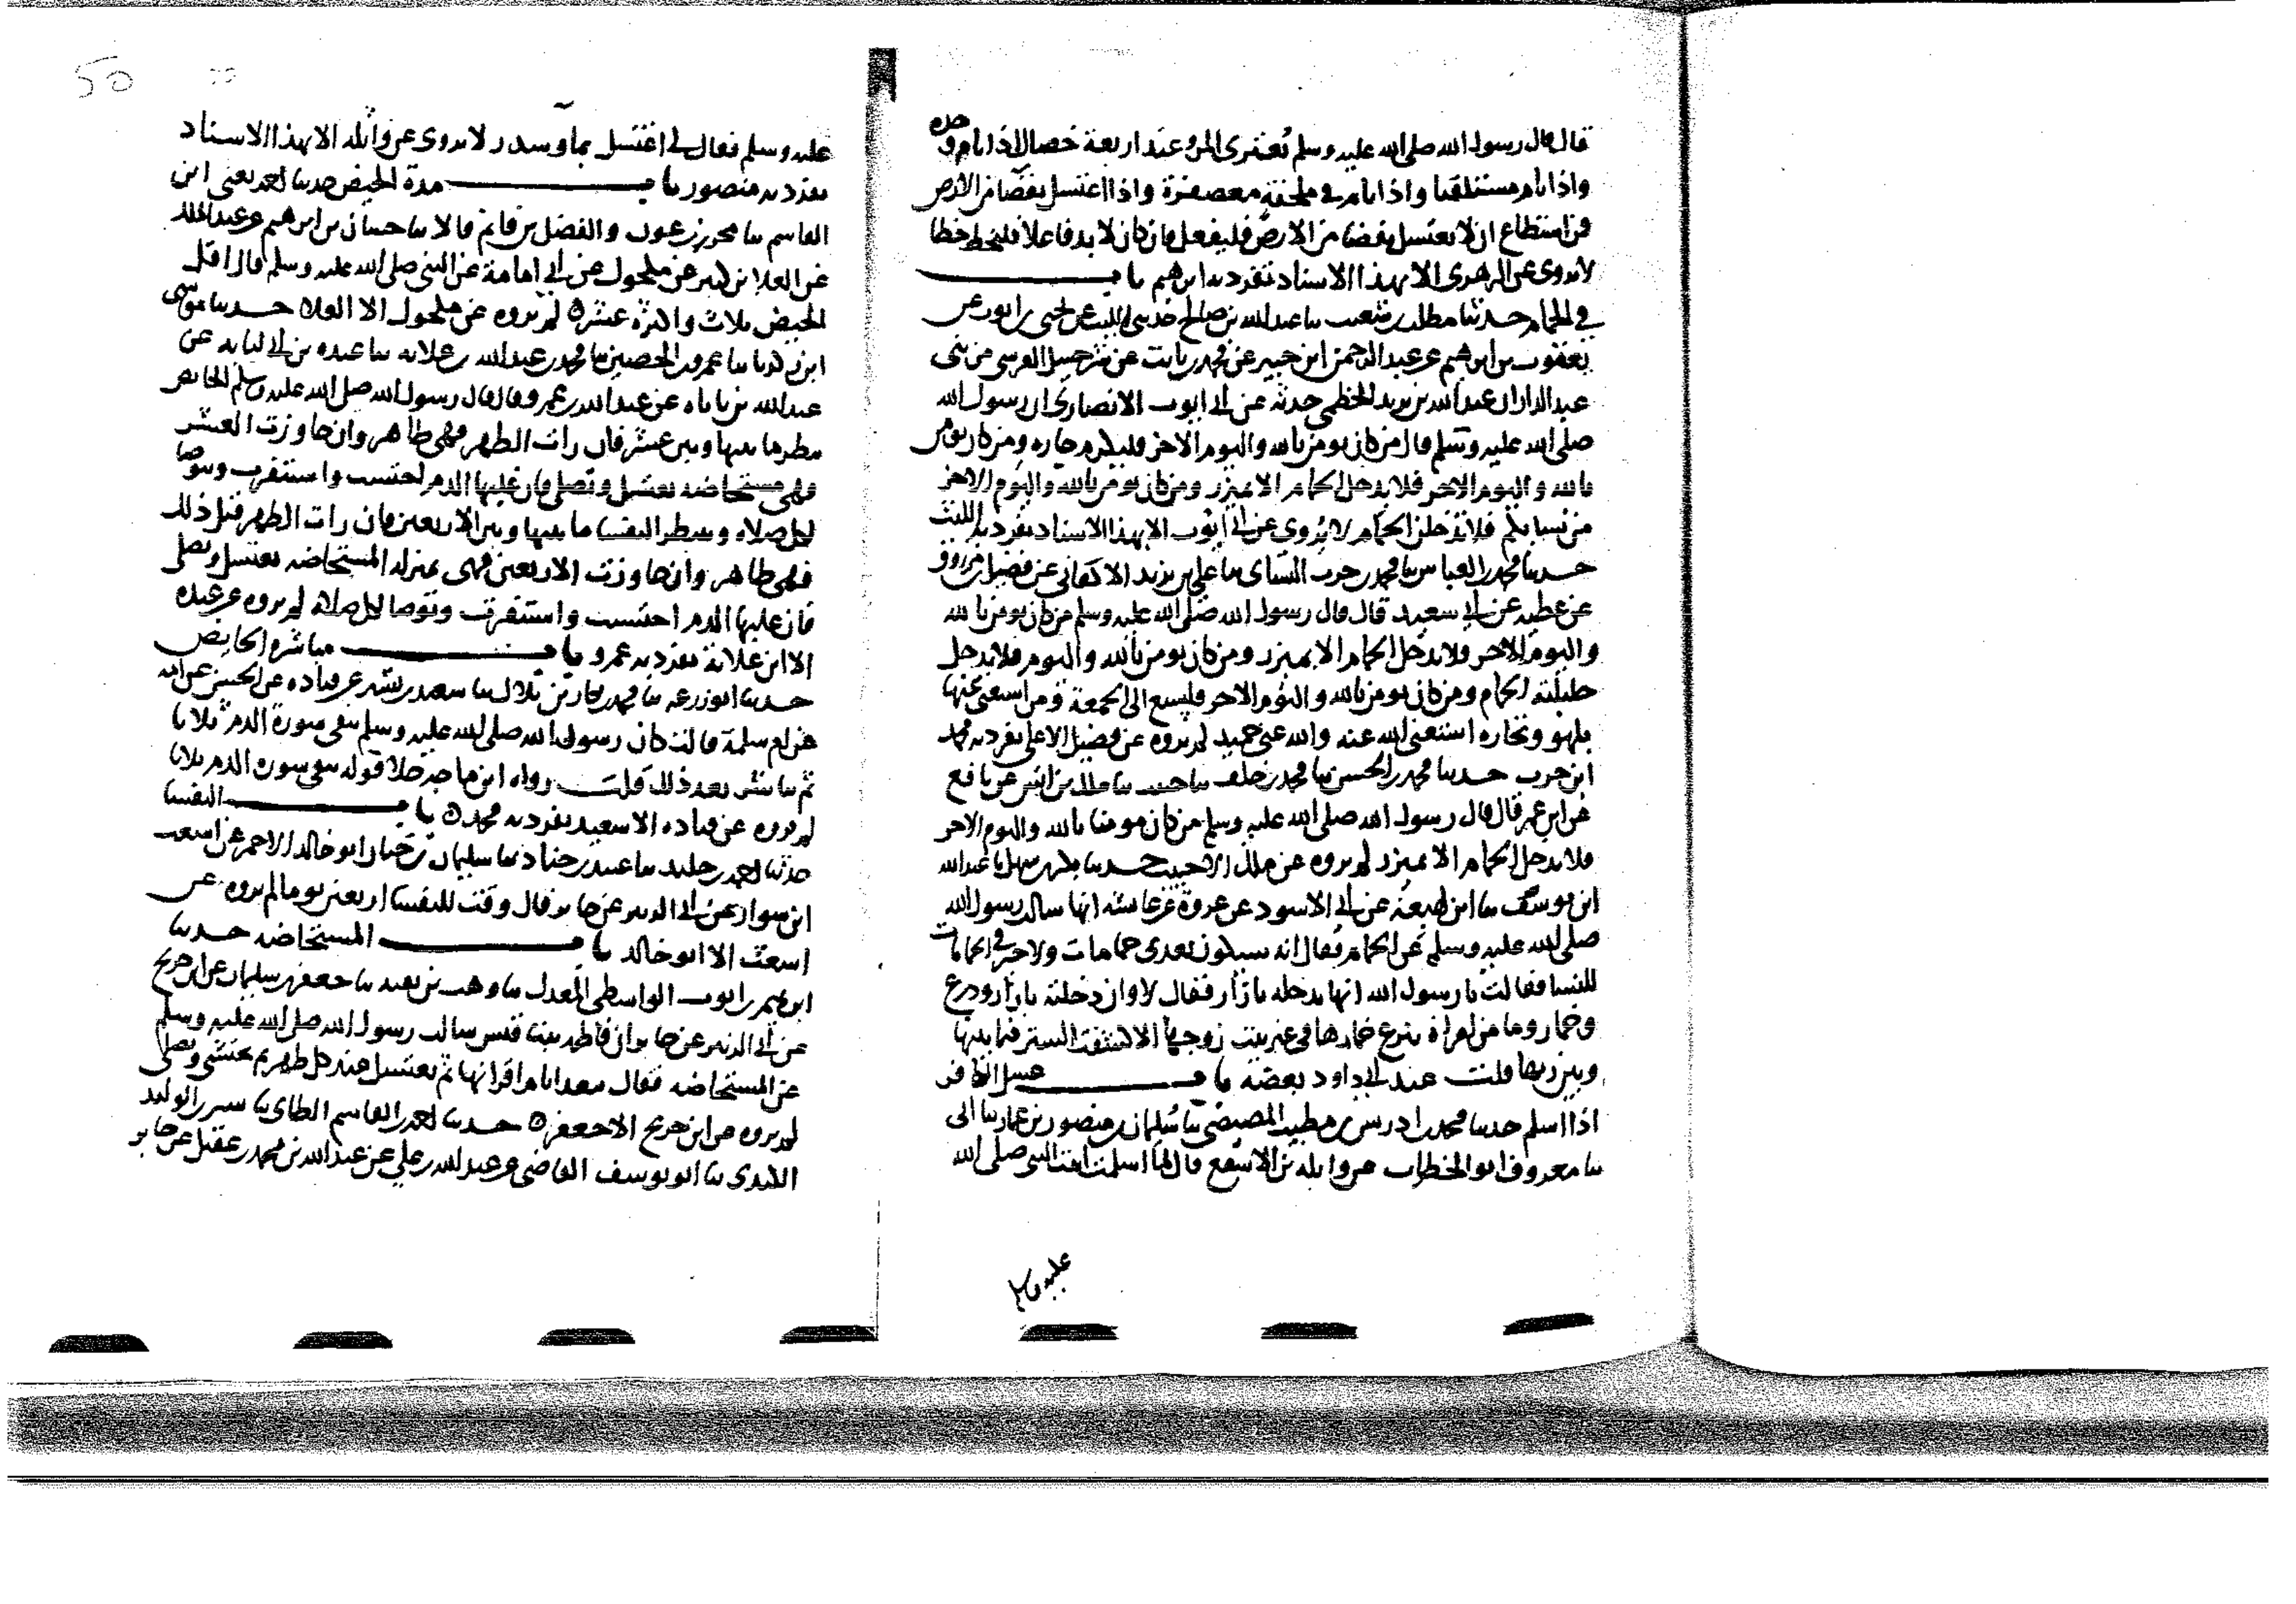 قال قال رسول الله صلى الله عليه وسلم تعترى المرء عند اربعة خصال اذا نام وحده
واذا نام مستلقيا واذا نام في ملحفة معصفرة واذا اغتسل بفضا من الارض
فمن استطاع ان لا يغتسل بفضا من الارض فليفعل فان كان لا بد فاعلا فليخط خطا
لا يروى عن الزهرى الا بهذا الاسناد تفرد به ابرهيم باب
في الحمام حدثنا مطلب بن شعيب نا عبد الله بن صالح حدثنى الليث عن يحيى بن ايوب عن
يعقوب بن ابرهيم عن عبد الرحمن ابن جبير عن محمد بن ثابت عن شرحبيل القرشى من بنى
عبد الدار ان عبد الله بن يزيد الخطمي حدثه عن ابى ايوب الانصارى ان رسول الله
صلى الله عليه وسلم قال من كان يومن بالله واليوم الاخر فليكرم جاره ومن كان يومن
بالله واليوم الاخر فلا يدخل الحمام الا بميزر ومن كان يومن بالله واليوم الاخر
من نسايكم فلا تدخلن الحمام لا يروى عن ابى ايوب الا بهذا الاسناد تفرد به الليث
حدثنا محمد بن العباس نا محمد بن حرب النشاى نا على بن يزيد الاكفانى عن فضيل بن مرزوق
عن عطيه عن ابى سعيد قال قال رسول الله صلى الله عليه وسلم من كان يومن بالله
واليوم الاخر فلا يدخل الحمام الا بميزر ومن كان يومن بالله واليوم فلا يدخل
حليلته الحمام ومن كان يومن بالله واليوم الاخر فليسع الى الجمعة ومن استغنى عنها
بلهو وتجاره استغنى الله عنه والله غنى حميد لم يروه عن فضيل الا على تفرد به محمد
ابن حرب حدثنا محمد بن الحسن نا محمد بن خلف نا حبيب نا ملك بن انس عن نافع
عن ابن عمر قال قال رسول الله صلى الله عليه وسلم من كان مومنا بالله واليوم الاخر
فلا يدخل الحمام الا بميزر لم يروه عن ملك الا حبيب حدثنا بكر بن سهل نا عبد الله
ابن يوسف نا ابن لهيعة عن ابى الاسود عن عروة عن عائشه انها سالت رسول الله
صلى الله عليه وسلم عن الحمام فقال انه سيكون بعدى حمامات ولا خير في الحمامات
للنسا فقالت يا رسول الله انها تدخله بازار فقال لا وان دخلته بازار ودرع
وخمار وما من امراة تنزع خمارها في غير بيت زوجها الا كشفت الستر فيما بينها
وبين ربها قلت عند ابى داود بعضه باب غسل الكافر
اذا اسلم حدثنا محمد بن ادريس بن مطيب المصيصى نا سليمان بن منصور بن عمار نا ابى
نا معروف ابو الخطاب عن واثله بن الاسقع قال لما اسلمت اتيت النبى صلى الله
عليه وسلم
عليه وسلم فقال لى اغتسل بماء وسدر لا يروى عن واثله الا بهذا الاسناد
تفرد به منصور باب مدة الحيض حدثنا احمد يعنى ابن
القاسم نا محرز بن عون والفضل بن غانم قالا نا حسان بن ابرهيم عن عبد الملك
عن العلاء بن كثير عن مكحول عن ابى امامة عن النبى صلى الله عليه وسلم قال اقل
الحيض ثلاث واكثره عشر لم يروه عن مكحول الا العلاء حدثنا موسى
ابن زكريا نا عمرو بن الحصين نا محمد بن عبد الله بن علاثه نا عبده بن ابى لبابه عن
عبد الله بن باباه عن عبد الله بن عمرو قال قال رسول الله صلى الله عليه وسلم الحايض
تنظر ما بينها وبين عشر فان رات الطهر فهى طاهر وان جاوزت العشر
فهى مستحاضه تغتسل وتصلى فان غلبها الدم احتشت واستثفرت وتوضا
لكل صلاه وتنتظر النفسا ما بينها وبين الاربعين فان رات الطهر قبل ذلك
فهى طاهر وان جاوزت الاربعين فهى بمنزله المستحاضه تغتسل وتصلى
فان غلبها الدم احتشت واستثفرت وتوضا لكل صلاة لم يروه عن عبده
الا ابن علاثة تفرد به عمرو باب مباشرة الحايض
حدثنا ابو زرعه نا محمد بن بكار بن بلال نا سعيد بن بشير عن قتاده عن الحسن عن امه
عن ام سلمة قالت كان رسول الله صلى الله عليه وسلم يتقى سورة الدم ثلاثا
ثم يباشر بعد ذلك قلت رواه ابن ماجه خلا قوله يتقى سورة الدم ثلاثا
لم يروه عن قتاده الا سعيد تفرد به محمد باب النفسا
حدثنا احمد بن خليد نا عبيد بن جناد نا سليمان بن حيان ابو خالد الاحمر عن اشعث
ابن سوار عن ابى الزبير عن جابر قال وقت للنفسا اربعين يوما لم يروه عن
اشعث الا ابو خالد باب المستحاضه حدثنا
ابرهيم بن ايوب الواسطى المعدل نا وهب بن بقيه نا جعفر بن سليمان عن ابن جريج
عن ابى الزبير عن جابر ان فاطمه بنت قيس سالت رسول الله صلى الله عليه وسلم
عن المستحاضه فقال تقعد ايام اقرائها ثم تغتسل عند كل طهر ثم تحتشى وتصلى
لم يروه عن ابن جريج الا جعفر حدثنا احمد بن القاسم الطاى نا بشر بن الوليد
الكندى نا ابو يوسف القاضى عن عبد الله بن على عن عبد الله بن محمد بن عقيل عن جابر
50